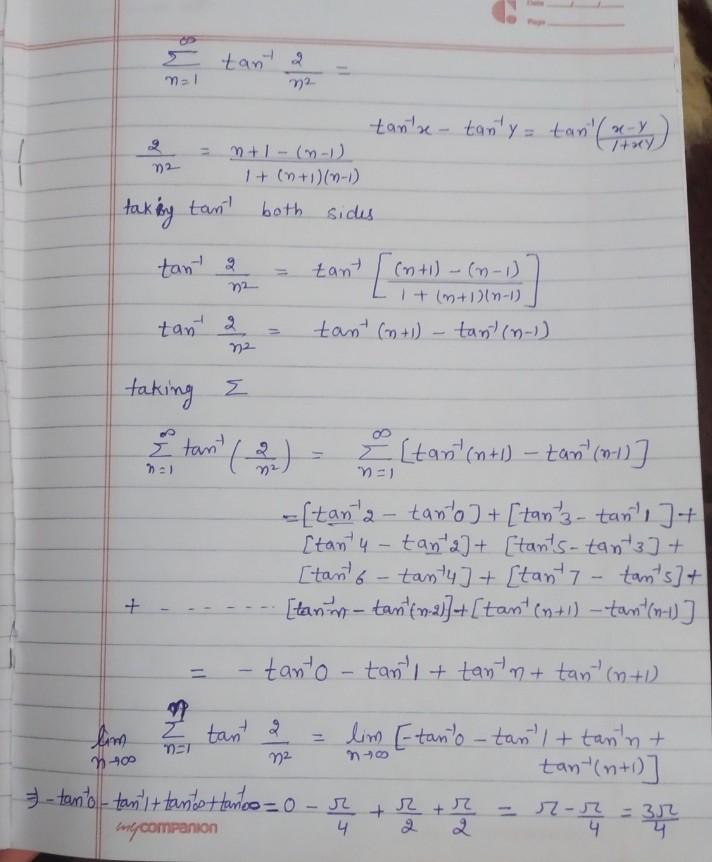 Date
Page
∞
Σ tan⁻¹ 2/n² =
n=1
tan⁻¹x - tan⁻¹y = tan⁻¹((x-y)/(1+xy))
2/n² = (n+1-(n-1))/(1+(n+1)(n-1))
taking tan⁻¹ both sides
tan⁻¹ 2/n² = tan⁻¹ [((n+1)-(n-1))/(1+(n+1)(n-1))]
tan⁻¹ 2/n² = tan⁻¹(n+1) - tan⁻¹(n-1)
taking Σ
∞ ∞
Σ tan⁻¹(2/n²) = Σ [tan⁻¹(n+1) - tan⁻¹(n-1)]
n=1 n=1
= [tan⁻¹2 - tan⁻¹0] + [tan⁻¹3 - tan⁻¹1] +
[tan⁻¹4 - tan⁻¹2] + [tan⁻¹5 - tan⁻¹3] +
[tan⁻¹6 - tan⁻¹4] + [tan⁻¹7 - tan⁻¹5] +
+ - - - - - - - [tan⁻¹n - tan⁻¹(n-2)] + [tan⁻¹(n+1) - tan⁻¹(n-1)]
= - tan⁻¹0 - tan⁻¹1 + tan⁻¹n + tan⁻¹(n+1)
n
lim Σ tan⁻¹ 2/n² = lim [-tan⁻¹0 - tan⁻¹1 + tan⁻¹n +
n→∞ n=1 n→∞ tan⁻¹(n+1)]
⇒ -tan⁻¹0 - tan⁻¹1 + tan⁻¹∞ + tan⁻¹∞ = 0 - π/4 + π/2 + π/2 = π - π/4 = 3π/4
mycompanion